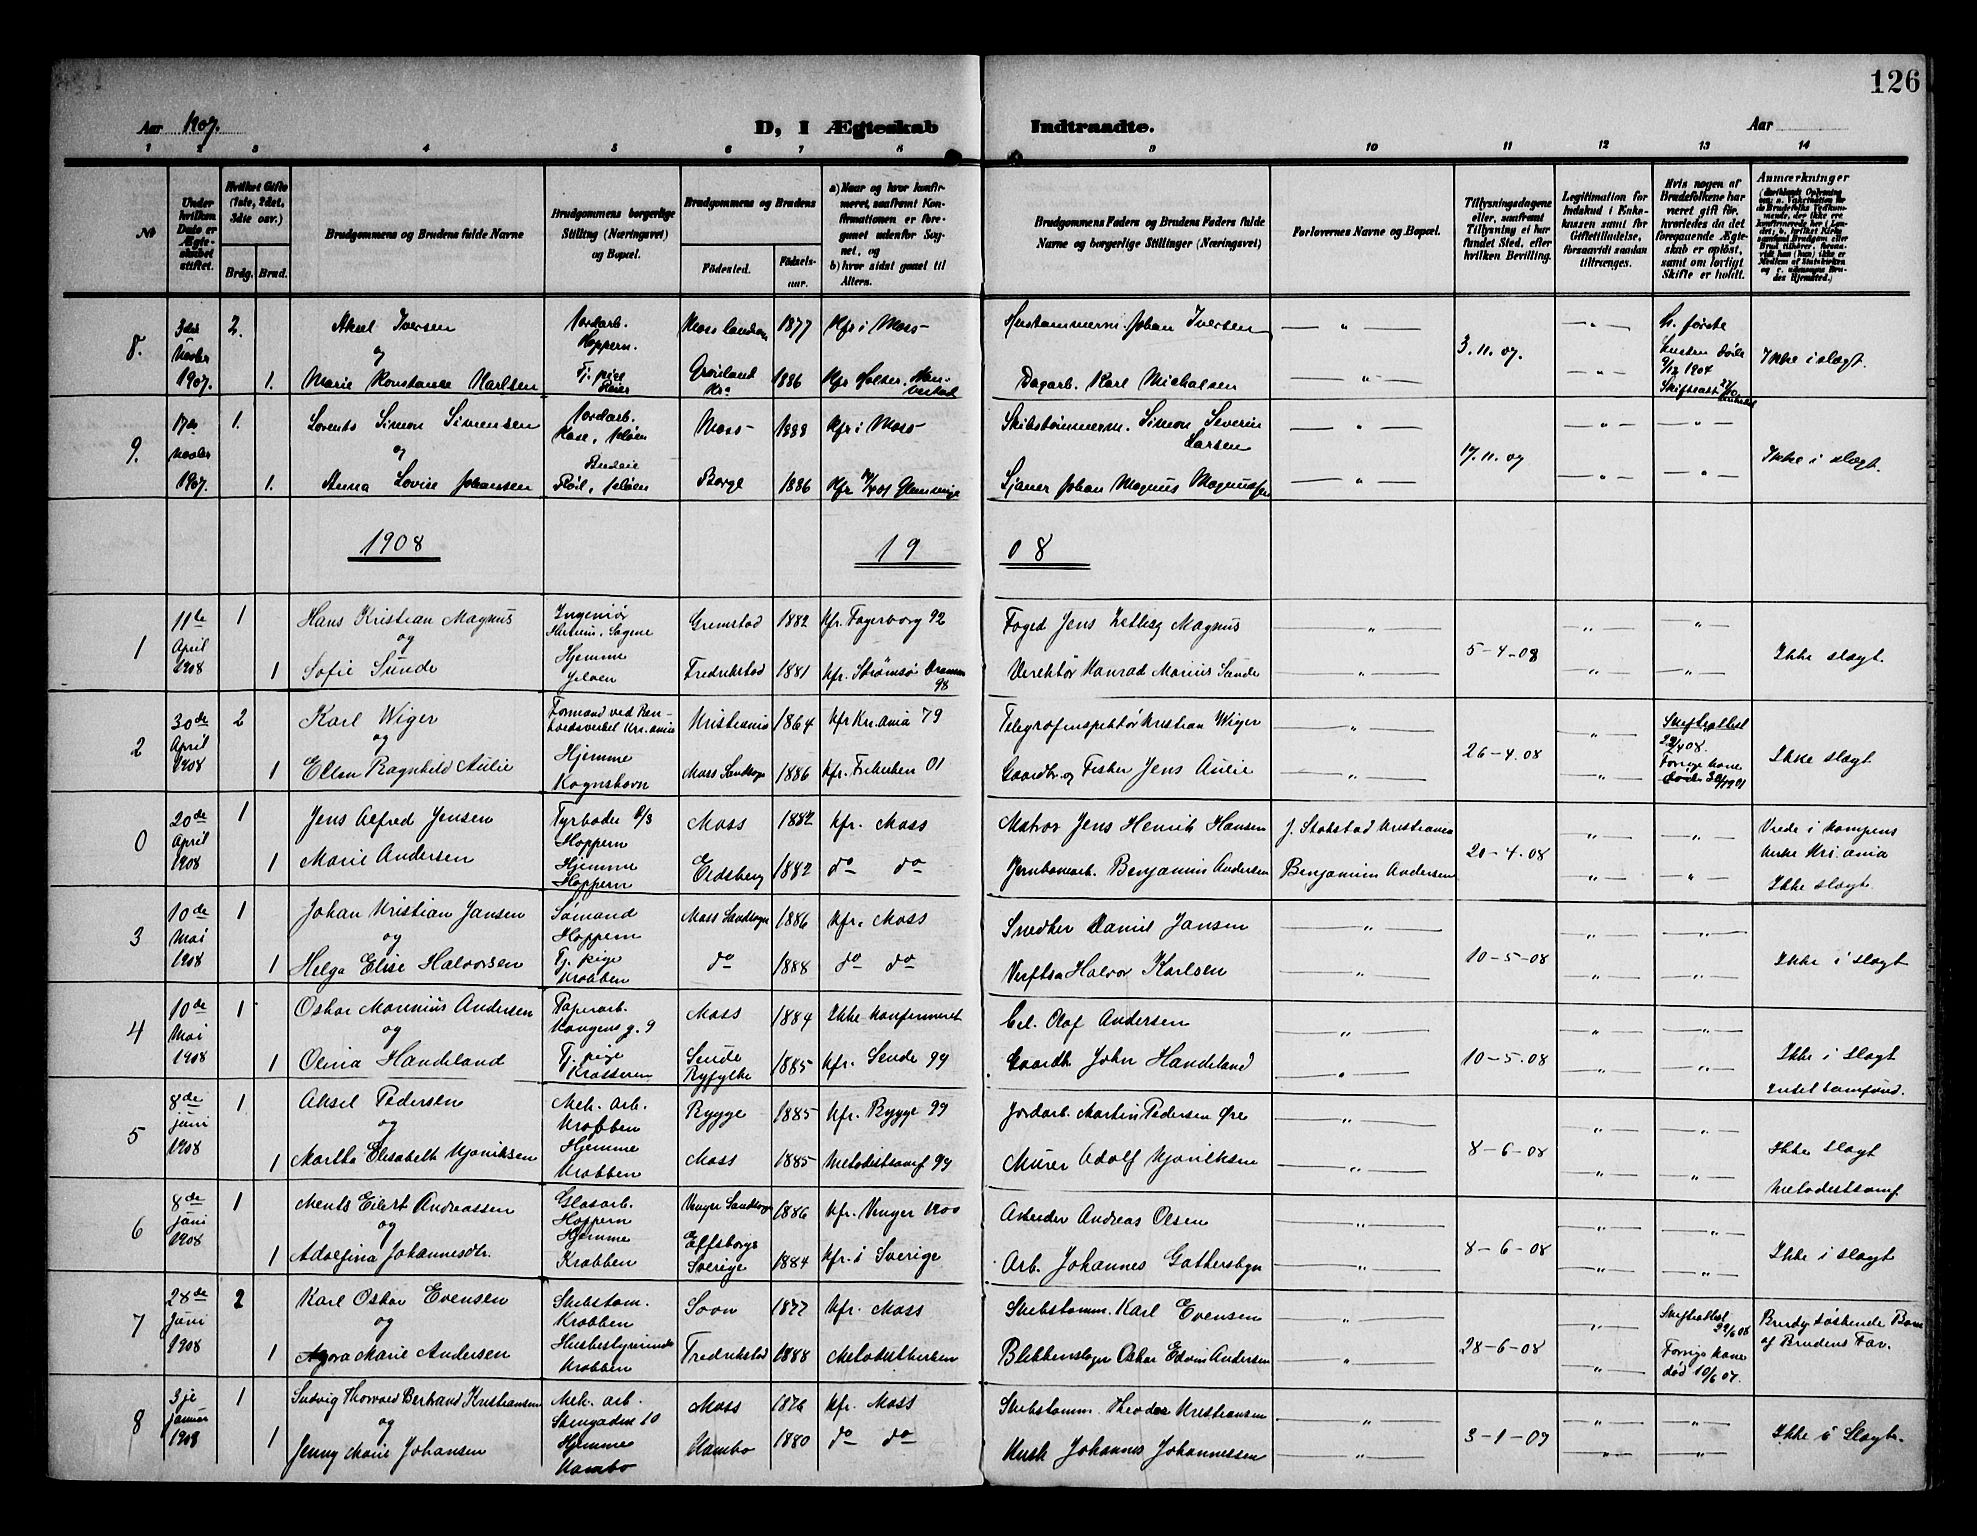 126
Aar 1907.
D, I Ægteskab Indtraadte.
Aar
1 2 3 4 5 6 7 8 9 10 11 12 13 14
No
Under hvilken Dato er Ægteskabet stiftet.
Hvilket Gifte (1ste, 2det, 3die osv.)
Brdg. Brud.
Brudgommens og Brudens fulde Navne
Brudgommens borgerlige Stilling (Næringsvei) og Bopæl.
Brudgommens og Brudens
Fødested.
Fødselsaar.
a) Naar og hvor konfirmeret, saafremt Konfirmationen er foregaaet udenfor Sognet, og
b) hvor sidst gaaet til Alters.
Brudgommens Faders og Brudens Faders fulde Navne og borgerlige Stillinger (Næringsvei)
Forlovernes Navne og Bopæl.
Tillysningsdagene eller, saafremt Tillysning ei har fundet Sted, efter hvilken Bevilling.
Legitimation for Indskud i Enkekassen samt for Giftetilladelse, forsaavidt saadan tiltrænges.
Hvis nogen af Brudefolkene har været gift før, hvorledes da det foregaaende Ægteskab er opløst, samt om lovligt Skifte er holdt.
Anmærkninger
8. 3die Novbr 1907. 2. Aksel Iversen Jordarb. Hoppern. Moss landsn 1877 Kfr i Moss Johan Iversen 3.11.07. Ikke i slægt.
og
1. Marie Konstanse Karlsen Tj. pige Grønland Kra 1886 Kfr Dagarb. Karl Michalsen
9. 17de Novbr 1907. 1. Lorents Simon Simensen Jordarb. Kase, Jeløen Moss 1888 Kfr i Moss Skibstømmerm. Simon Severin Larsen 17.11.07 Ikke i slægt.
og
1. Anna Lovise Johansen Budeie Jeløen Borge 1886 Kfr Johan Magnus Magnussen
1908 19 08
1 11te April 1908 1 Hans Kristian Magnus Ingeniør Grimstad 1882 Kfr. Fagerborg 92 Foged Jens Zetlitz Magnus 5-4-08 Ikke slægt.
og
1 Sofie Sunde Hjemme Jeløen Fredrikstad 1881 Kfr. Strømsø Drammen 98 Direktør Konrad Marius Sunde
2 30de April 1908 2 Karl Wiger Formand ved Renholdsverket Kri.ania Kristiania 1864 Kfr Kri.ania 79 Telegrafinspektør Kristian Wiger 26-4-08 Skifteattest 22/4 08. Forrige kone død Ikke slægt
og
1 Ellen Ragnhild Aulie Hjemme Kognshavn Moss Landsogn 1886 Kfr. 01 Gaardbr. og Fisker Jens Aulie
0 20de April 1908 1 Jens Alfred Jensen Fyrbøder Hoppern Moss 1882 Kfr. Moss Matros Jens Henrik Hansen J. Stokstad Kristiania 20-4-08 Viede i Kampens Kirke Kri.ania
1 Marie Andersen Hjemme Hoppern Eidsberg 1882 do do Jernbanearb. Benjamin Andersen Benjamin Andersen Ikke slægt.
3 10de Mai 1908 1 Johan Kristian Jansen Sømand Hoppern Moss Landsogn 1886 Kfr. Moss Snedker Daniel Jansen 10-5-08 Ikke i slægt
og
1 Helga Elise Halvorsen Tj. pige Krabben do 1888 do do Verftsa Halvor Karlsen
4 10de Mai 1908 1 Oskar Marinius Andersen Papirarb. Kongens g. 9 Moss 1884 Ikke konfirmeret Olaf Andersen 10-5-08 Ikke i slægt
og
1 Olina Handeland Tj. pige Krosseren Sende Ryfylke 1885 Kfr. Sende 99 Gaardb. John Handeland
5 8de juni 1908 1 Aksel Pedersen Mek. arb. Krabben Rygge 1885 Kfr. Rygge 99 Jordarb. Martin Pedersen Øre 8-6-08 Ikke slægt
og
1 Martha Elisabeth Hjemme Krabben Moss 1885 Metodistsamf 99 Murer Adolf Metodistsamf.
6 8de juni 1908 1 Ments Eilert Andreassen Glasarb. Hoppern Vinger 1886 Kfr. Vinger 1900 Arbeider Andreas Olsen 8-6-08 Ikke i slægt
og
1 Adolfina Johannesdtr. Hjemme Krabben Elfsborgs Sverige 1884 Kfr. i Sverige Arb. Johannes
7 28de juni 1908 2 Karl Oskar Evensen Skibstøm. Krabben Soon 1877 Kfr. Moss Skibstømm. Karl Evensen 28-6-08 Skifteattest 22/6 08 Forrige kone død 10/6 07. Brudg. søskende Barn af Brudens Far.
og
1 Agora Marie Andersen Husbestyrerinde Krabben Fredrikstad 1888 Metodistkirken Blikkenslager Oskar Edvin Andersen
8 3je januar 1908 1 Ludvig Thorvald Bertrand Kristiansen Mek. arb. Stengaden 10 Moss 1876 Kfr. Moss Skibstømm. Theodor Kristiansen 3-1-09 Ikke i Slægt.
og
1 Jenny Marie Johansen Hjemme Kambo Kambo 1880 do do Kusk Johannes Johannessen